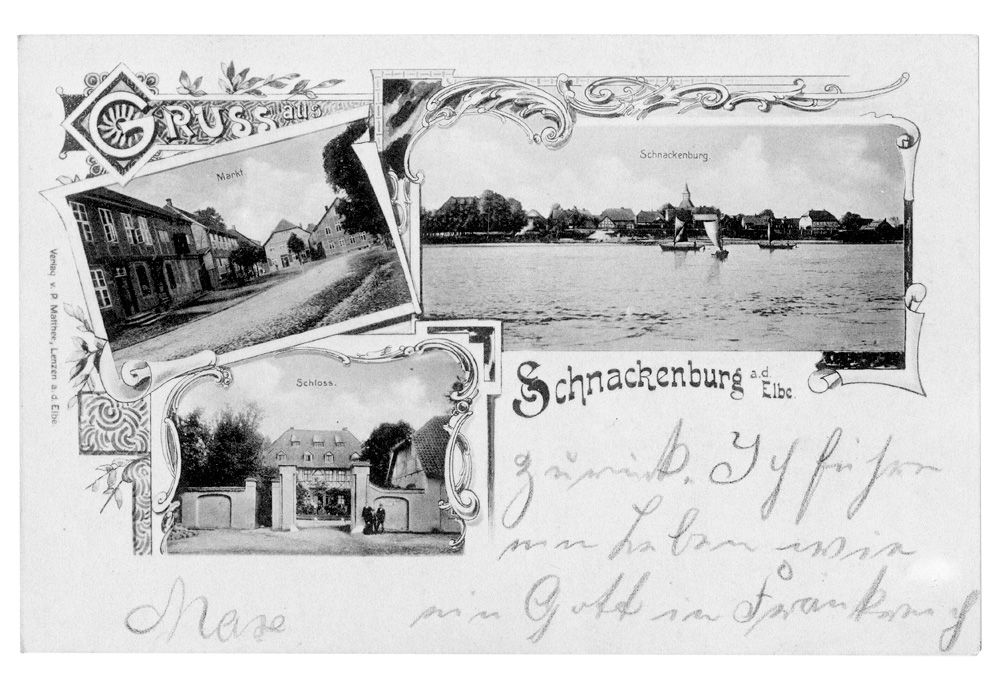 GRUSS aus
Markt.
Schnackenburg.
Verlag v. P. Matthee, Lenzen a. d. Elbe.
Schloss.
Schnackenburg a.d. Elbe.
zurück. Ich führe
ein Leben wie
ein Gott in Frankreich
Maxe